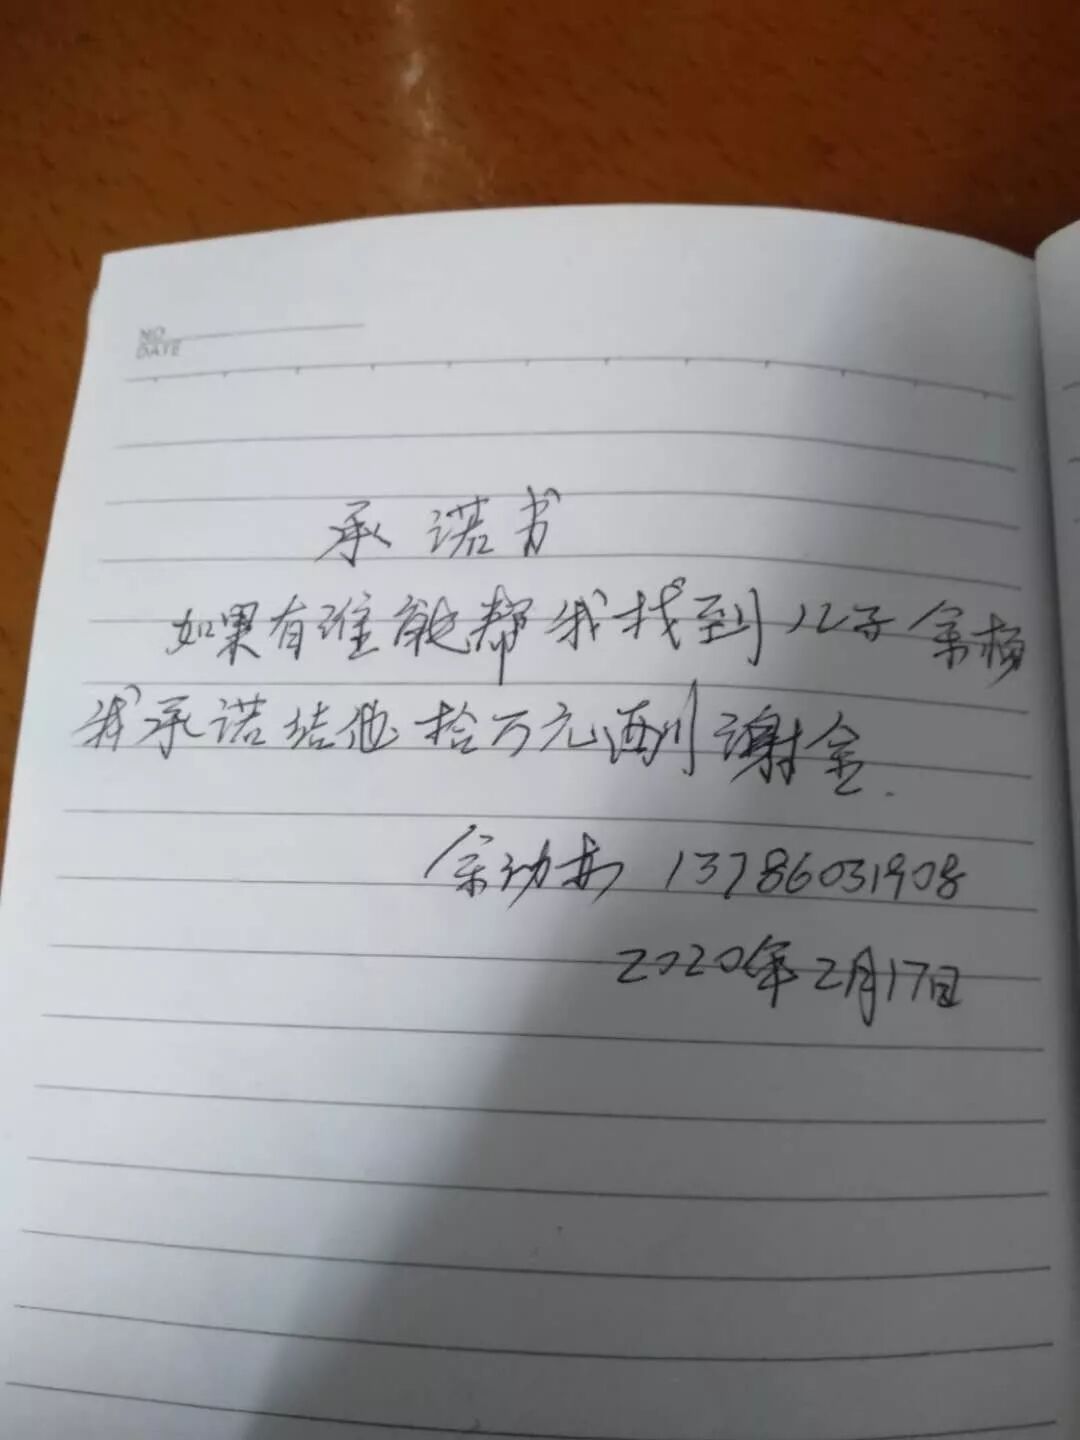 NO
DATE
承诺书
如果有谁能帮我找到儿子余杨
我承诺给他拾万元酬谢金.
余劲 13786031908
2020年2月17日